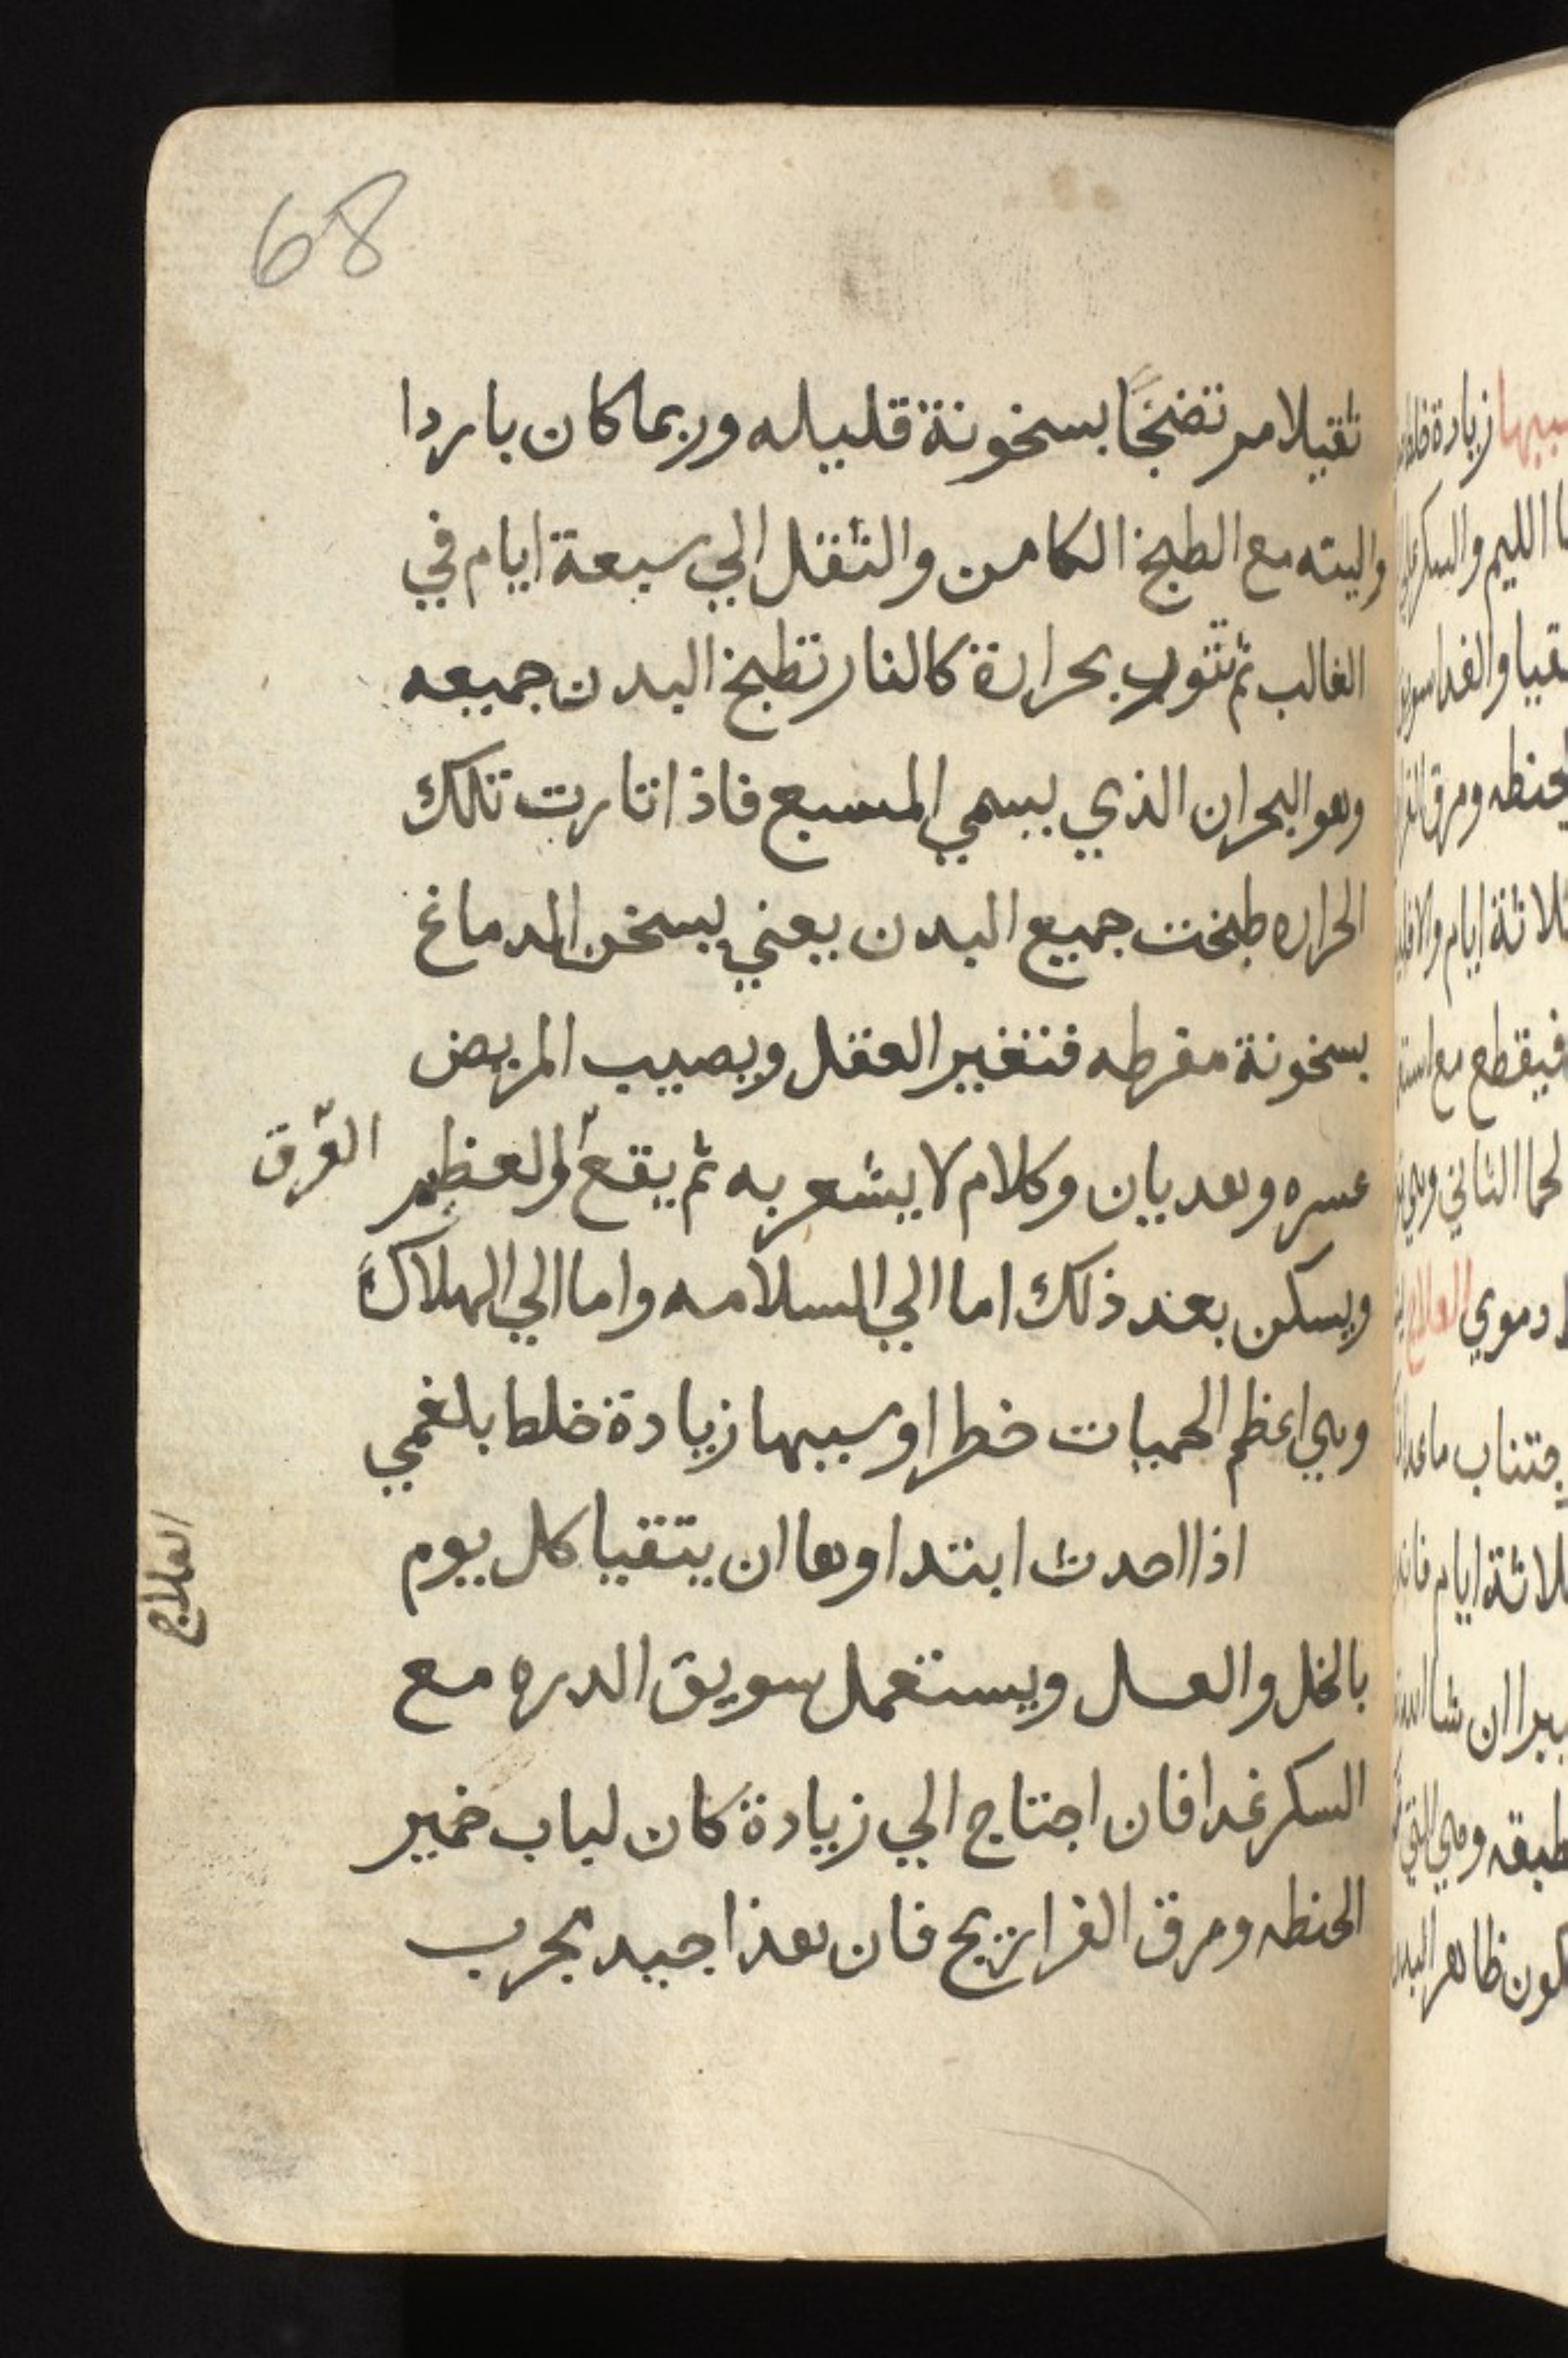 68
ثقيلا مرتضخًا بسخونة قليله وربما كان باردا
والبته مع الطبخ الكامن والثقل الي سبعة ايام في
الغالب ثم تثور بحرارة كالنار تطبخ البدن جميعه
وهو البحران الذي يسمي المسبع فاذا اثارت تلك
الحراره طبخت جميع البدن يعني يسخن الدماغ
بسخونة مفرطه فتغير العقل ويصيب المريض
عسره وهديان وكلام لا يشعر به ثم يقع والعظم
العرق
ويسكن بعد ذلك اما الي السلامه واما الي الهلاك
وهي اعظم الحميات خطرا وسببها زيادة خلط بلغمي
اذا احدث ابتدا وها ان يتقيا كل يوم
العلاج
بالخل والعسل ويستعمل سويق الدره مع
السكر غدا فان احتاج الي زيادة كان لباب خمير
الحنطه ومرق الفراريج فان هذا جيد مجرب